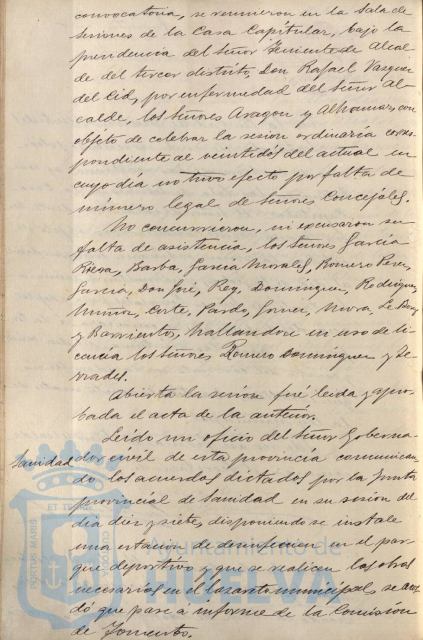 convocatoria, se reunieron en la Sala de
sesiones de la Casa Capitular, bajo la
presidencia del Señor Teniente de Alcal
de del tercer distrito, Don Rafael Vazquez
del Cid, por enfermedad del Señor Al
calde, los Señores Aragon y Alhamar, con
objeto de celebrar la sesion ordinaria corres
pondiente al veintidós del actual en
cuyo dia no tuvo efecto por falta de
número legal de Señores Concejales.
No concurrieron, ni excusaron su
falta de asistencia, los Señores Garcia
Barba, Garcia Morales, Romero Perez,
Garcia, Don José, Rey, Dominguez, Rodriguez,
Muñoz, Corte, Pardo, Mora,
y Barrientos, hallandose en uso de li
cencia los Señores Romero Dominguez y Se
rrades.
Abierta la sesion fué leida y apro
bada el acta de la anterior.
Sanidad
Leido un oficio del Señor Goberna
dor civil de esta provincia comunican
do los acuerdos dictados por la Junta
provincial de Sanidad en su sesion del
dia diez y siete, disponiendo se instale
una estacion de desinfeccion en el par
que deportivo y que se realicen las obras
necesarias en el Lazareto municipal, se acor
dó que pase á informe de la Comision
de Fomento.
Ayuntamiento de
HUELVA
PORTUS MARIS
ET TERRAE
CUSTODIA